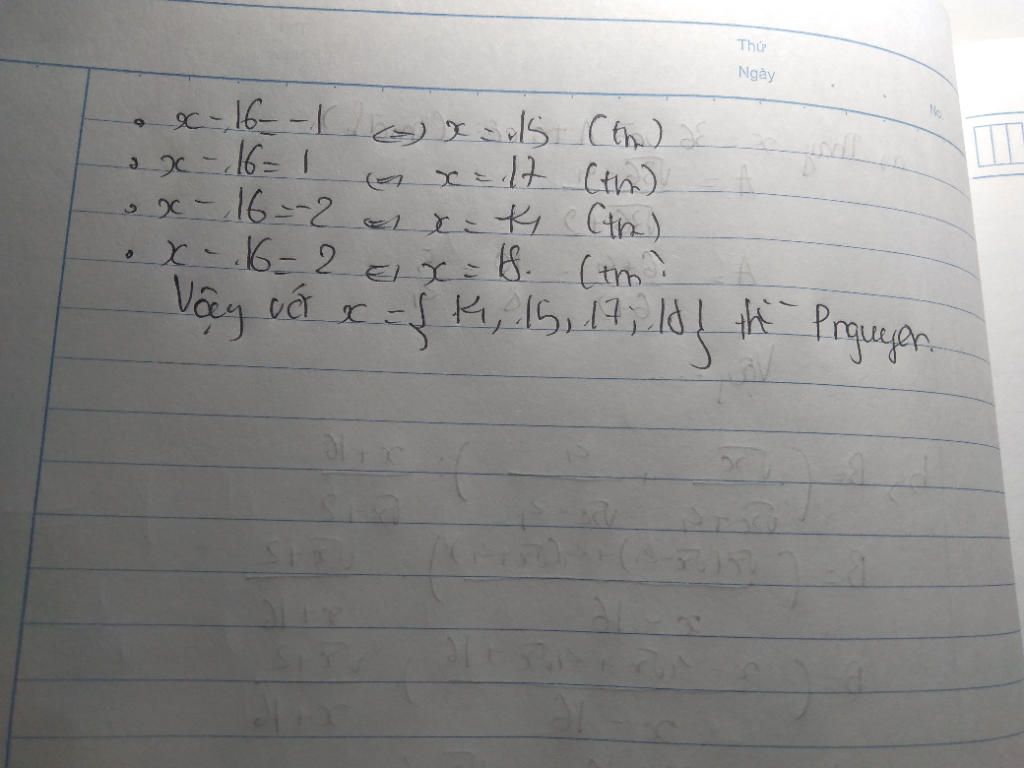 Thứ
Ngày
No
• x - 16 = -1 <=> x = 15 (tm)
• x - 16 = 1 <=> x = 17 (tm)
• x - 16 = -2 <=> x = 14 (tm)
• x - 16 = 2 <=> x = 18. (tm)
Vậy với x = {14, 15, 17, 18} thì P nguyen.